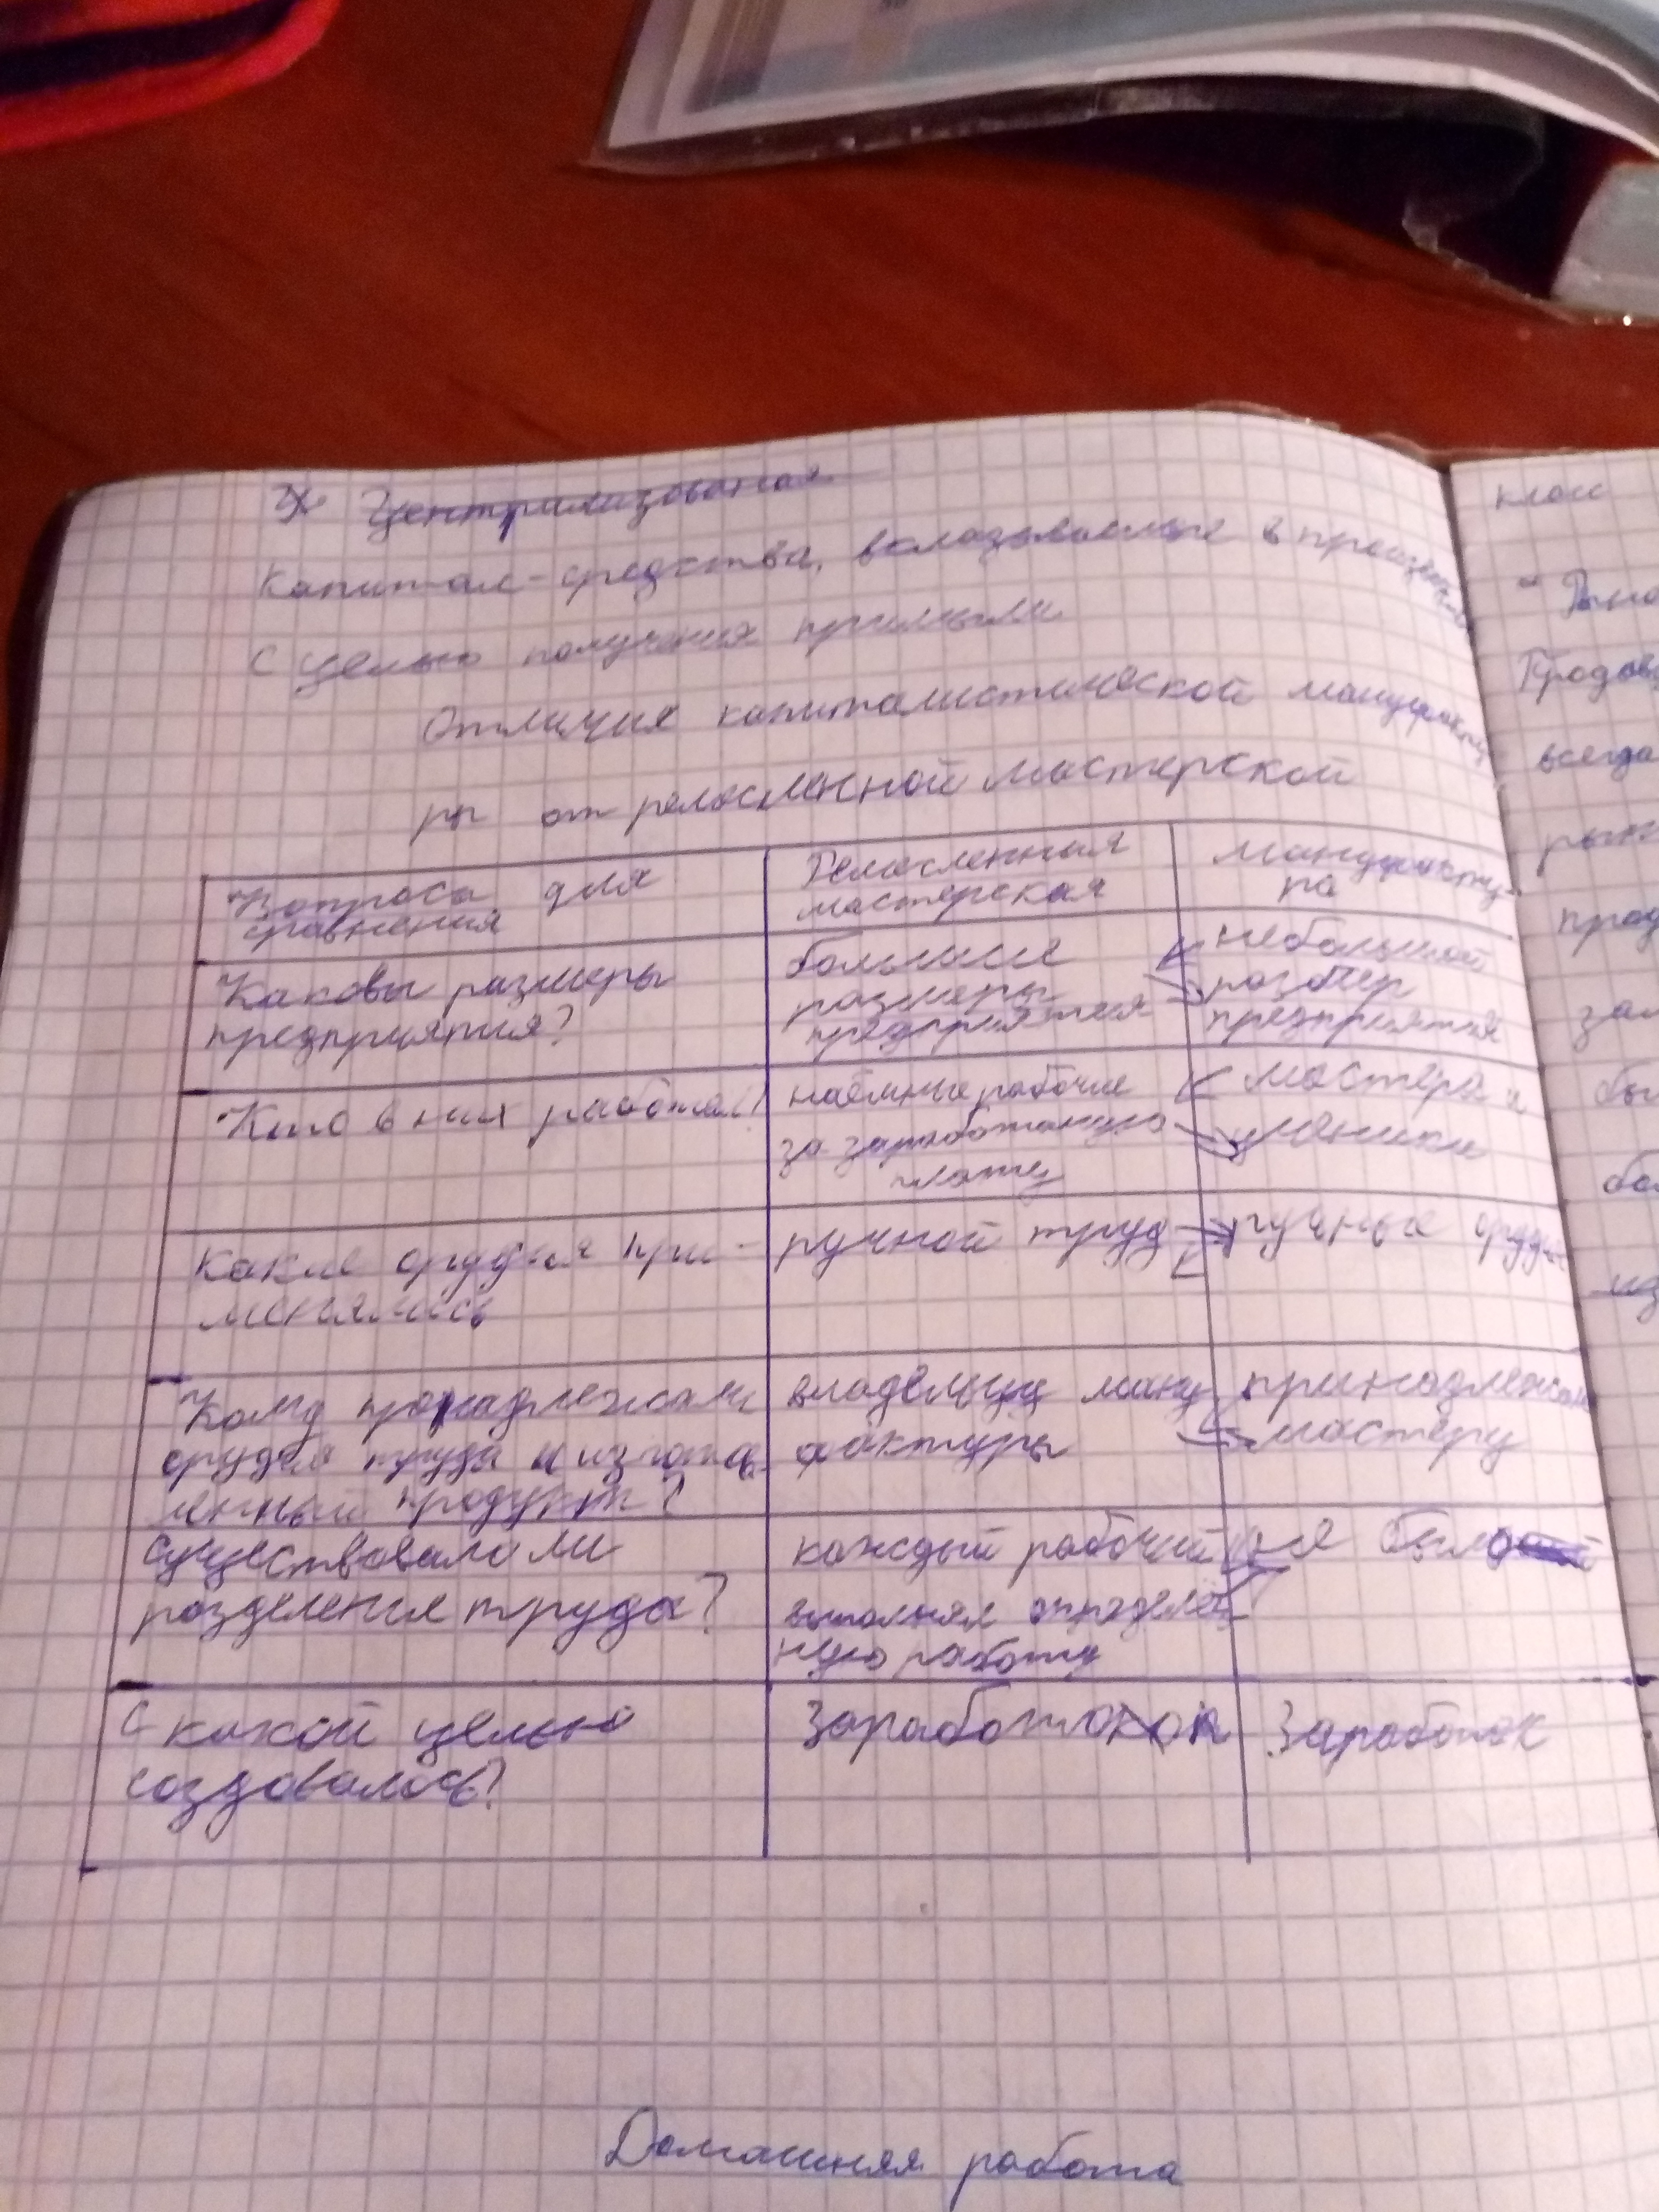 Централизованая
Капитал - средства, вкладываемые в
с целью получения прибыли.
Отличия капиталистической мануфакту
ры от ремесленной мастерской
Вопросы для
сравнения
Ремесленная
мастерская
мануфакту-
ра
Каковы размеры
предприятия?
большие
размеры
предприятия
небольшой
размер
предприятия
Кто в них работал?
наёмные рабочие
за заработаную
плату
мастера и
ученики
Какие орудия при-
менялись
ручной труд
ручные орудия
Кому принадлежали
орудия труда и изготов
ленный продукт?
владельцу ману
фактуры
принадлежали
мастеру
Существовало ли
разделение труда?
каждый рабочий
выполнял определён
ную работу
не было
С какой целью
создавалось?
Заработок
Заработок
Домашняя работа
класс
всегда